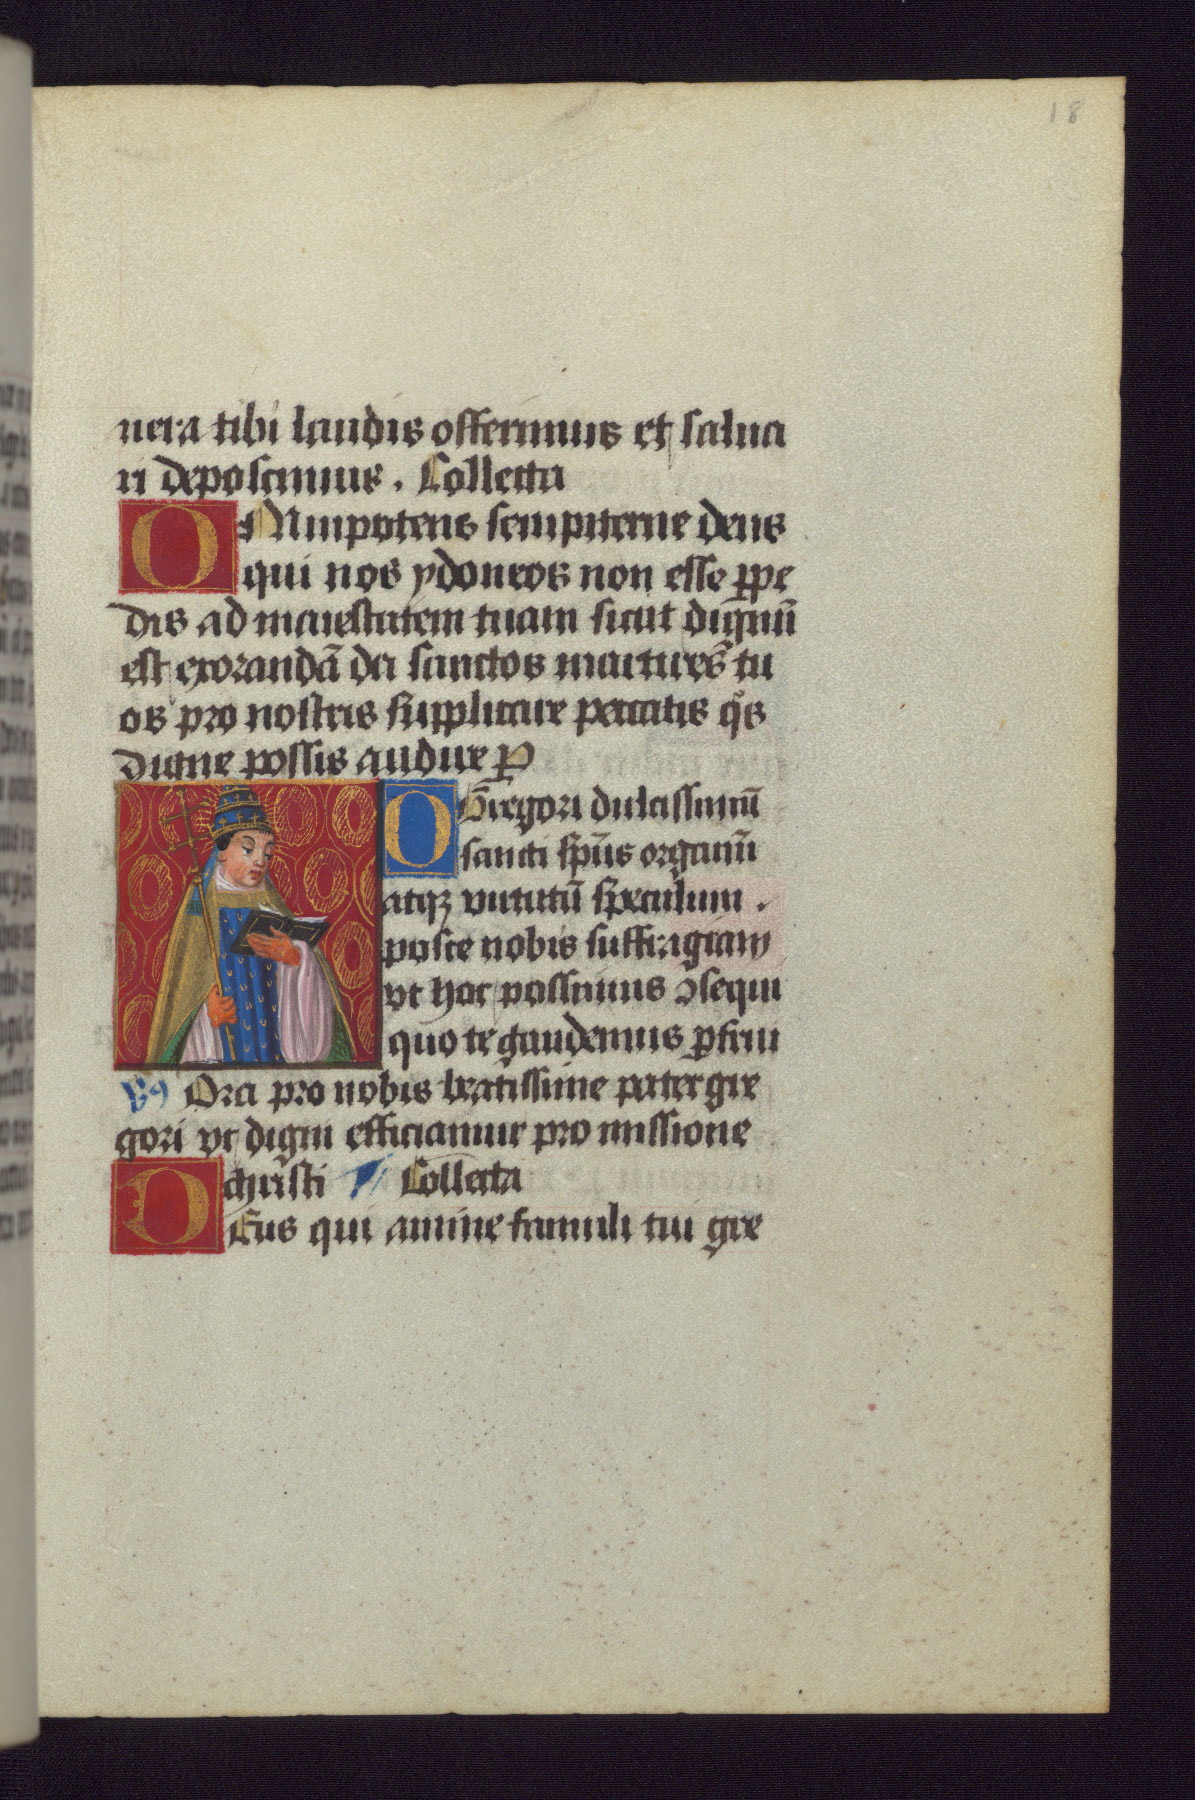 18
nera tibi laudis offerimus et salua
ri deposcimus . Collecta
OMnipotens sempiterne deus
qui nos ydoneos non esse ꝑpe
dis ad maiestatem tuam sicut dignū
est exorandā da sanctos martires tu
os pro nostris supplicare peccatis qͦs
digne possis audire P
O Gregori dulcissimū
sancti sp̄us organū
atqꝫ virtutū speculum .
posce nobis suffragiam
vt hoc possimus ꝯsequi
quo te gaudemus ꝑfrui
Ora pro nobis beatissime pater gre
gori vt digni efficiamur pro missione
christi Collecta
DEus qui anime famuli tui gre